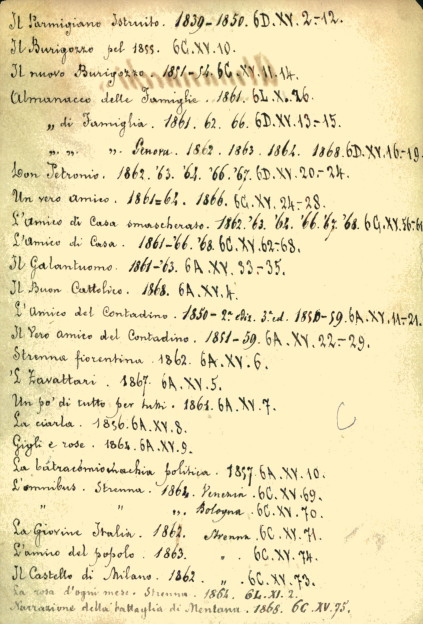 Il Parmigiano Istruito. 1839-1850. 6D.XV. 2-12.
Il Burigozzo pel 1855. 6C.XV.10.
Il nuovo Burigozzo. 1851-54. 6C.XV.11.14.
Almanacco delle Famiglie. 1861. 6L.X.26.
„ di Famiglia. 1861. 62. 66. 6D.XV.13-15.
„ „ „ Genova. 1862. 1863. 1864. 1868. 6D.XV.16-19.
Don Petronio. 1862. '63. '64. '66. '67. 6D.XV.20-24.
Un vero amico. 1861=64. 1866. 6C.XV.24-28.
L'Amico di Casa smascheraso. 1862. '63. '64. '66. '67. '68. 6C.XV.56-61
L'Amico di Casa. 1861-'66. '68. 6C.XV.62-68.
Il Galantuomo. 1861-'63. 6A.XV.33-35.
Il Buon Cattolico. 1868. 6A.XV.4.
L'Amico del Contadino. 1850-2ª diz. 3ª ed. 1856-59. 6A.XV.11-21.
Il Vero amico del Contadino. 1851-59. 6A.XV.22-29.
Strenna fiorentina. 1862. 6A.XV.6.
'L Zavattari. 1867. 6A.XV.5.
Un po' di tutto per tutti. 1861. 6A.XV.7.
La ciarla. 1856. 6A.XV.8.
Gigli e rose. 1864. 6A.XV.9.
La batracomiomachia politica. 1857. 6A.XV.10.
L'omnibus. Strenna. 1864. Venezia. 6C.XV.69.
„ „ „ Bologna. 6C.XV.70.
La Giovine Italia. 1862. Strenna 6C.XV.71.
L'amico del popolo. 1863. „ . 6C.XV.74.
Il Castello di Milano. 1862. „ . 6C.XV.73.
La rosa d'ogni mese. Strenna. 1864. 6L.XI.2.
Narrazione della battaglia di Mentana. 1868. 6C.XV.75.